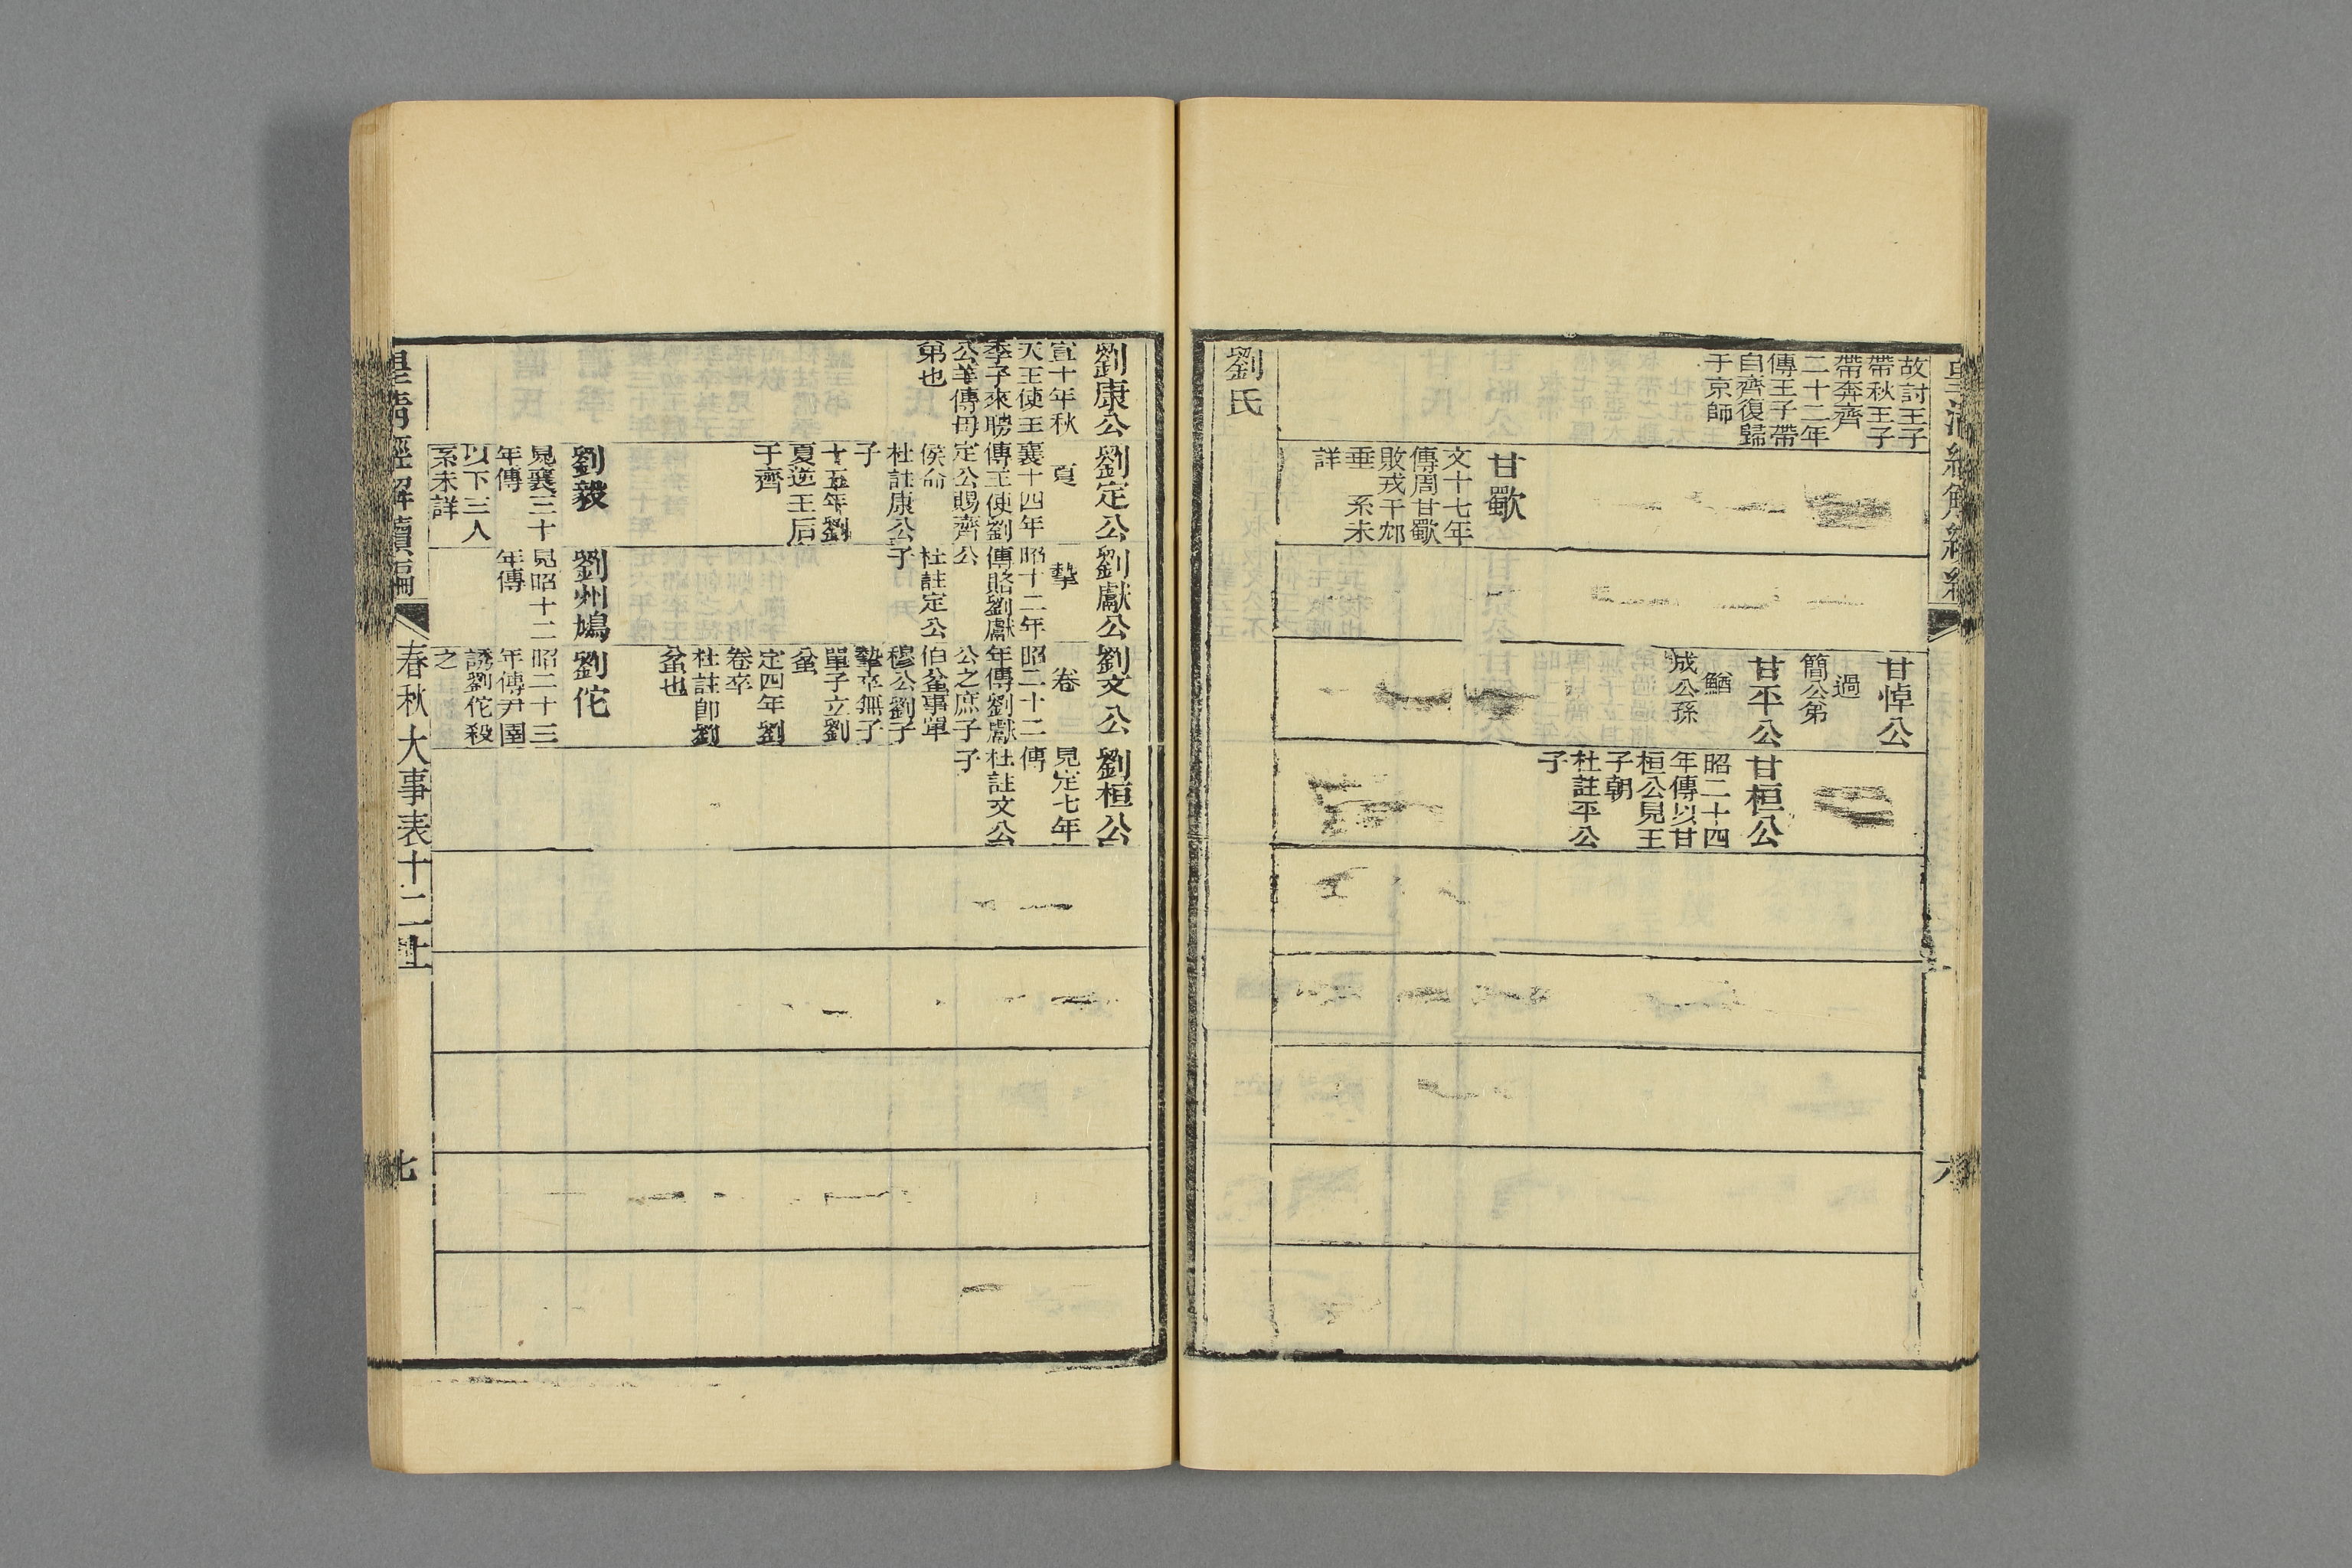 故討王子
帶秋王子
帶奔齊
二十二年
傳王子帶
自齊復歸
于京師
甘歜
文十七年
傳周甘歜
敗戎于邥
垂 系未
詳
甘悼公
過
簡公弟
甘平公
鰌
成公孫
甘桓公
昭二十四
年傳以甘
桓公見王
子朝
杜註平公
子
劉氏
六
劉康公
宣十年秋
天王使王
季子來聘
公羊傳母
弟也
劉定公
夏
襄十四年
傳王使劉
定公賜齊
侯命
杜註康公
子
十五年劉
夏逆王后
于齊
劉獻公
摯
昭十二年
傳賂劉獻
公
杜註定公
子
劉文公
卷
昭二十二
年傳劉獻
公之庶子
伯蚠事單
穆公劉子
摯卒無子
單子立劉
蚠
定四年劉
卷卒
杜註即劉
蚠也
劉桓公
見定七年
傳
杜註文公
子
劉毅
見襄三十
年傳
以下三人
系未詳
劉州鳩
見昭十二
年傳
劉佗
昭二十三
年傳尹圉
誘劉佗殺
之
皇清經解續編
春秋大事表十二
七